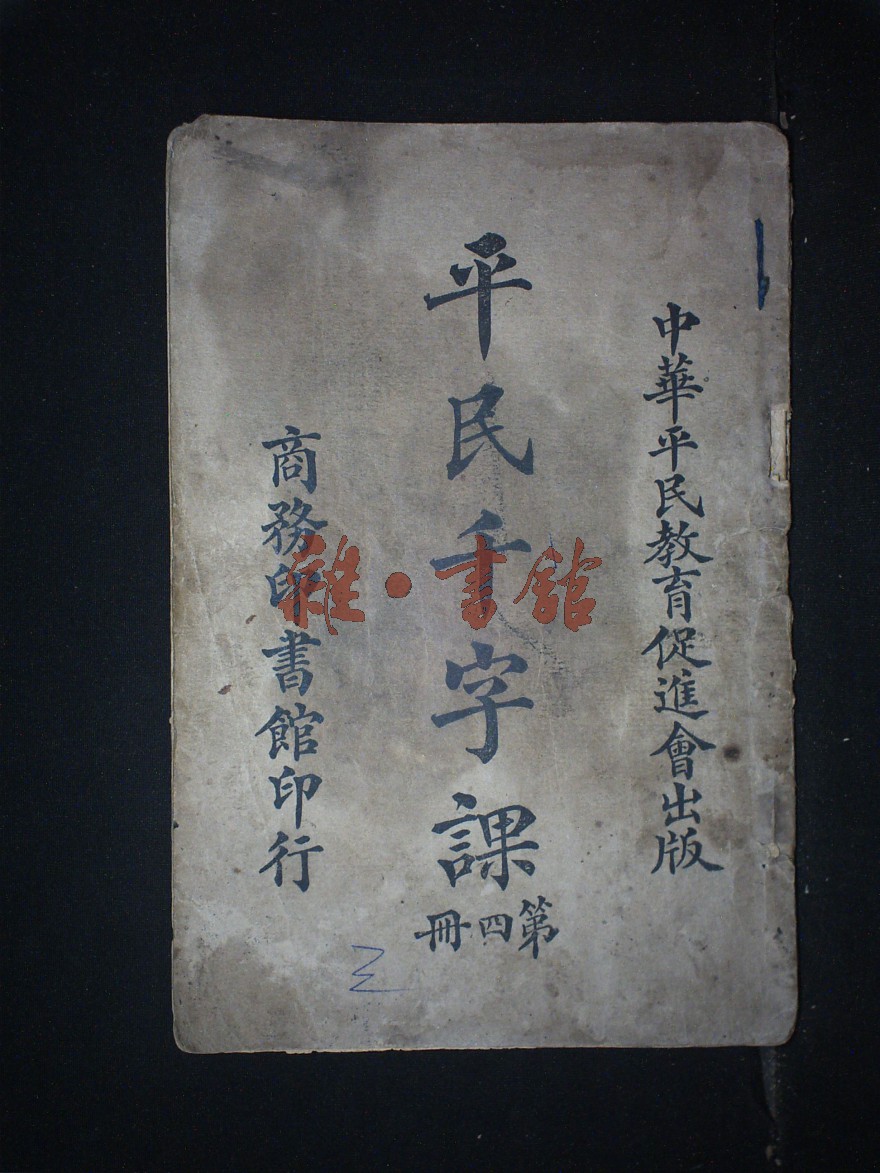 中華平民教育促進會出版
平民千字課
第四冊
商務印書館印行
雜·書館